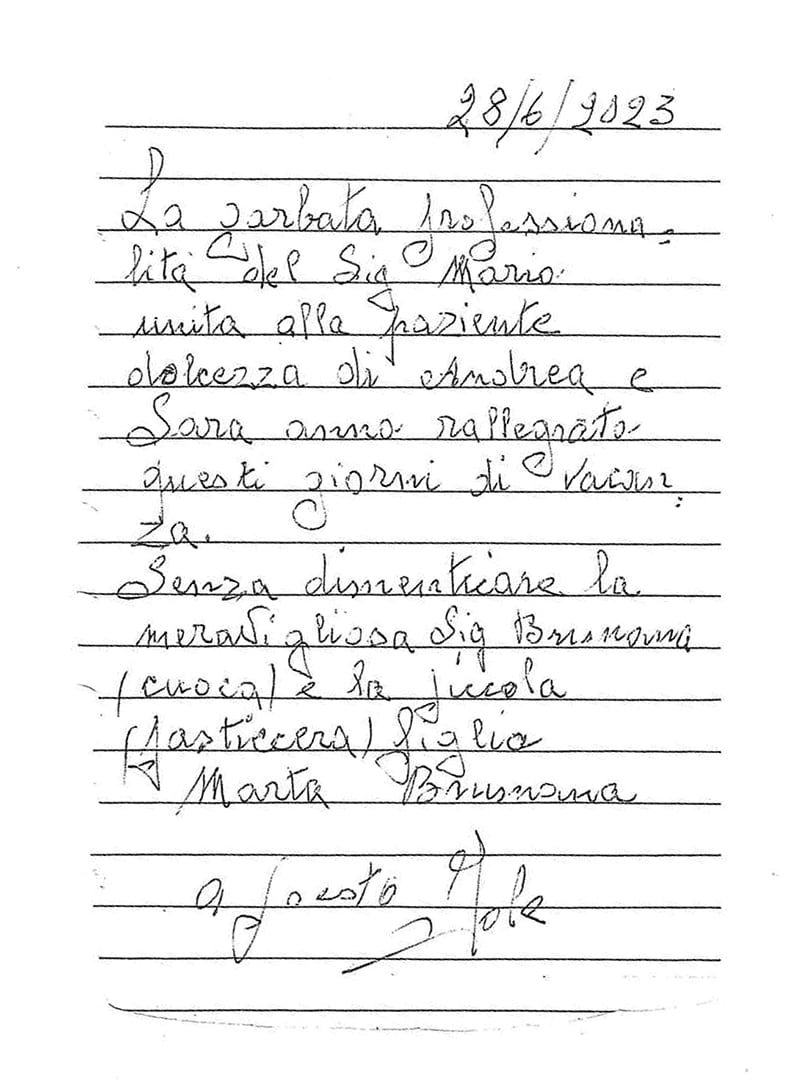 28/6/2023
La garbata professiona-
lità del Sig Mario
unita alla paziente
dolcezza di Andrea e
Sara anno rallegrato
questi giorni di vacan-
za.
Senza dimenticare la
meravigliosa Sig Brusnana
(cuoca) e la piccola
(pasticcera) figlia
Marta Brusnana